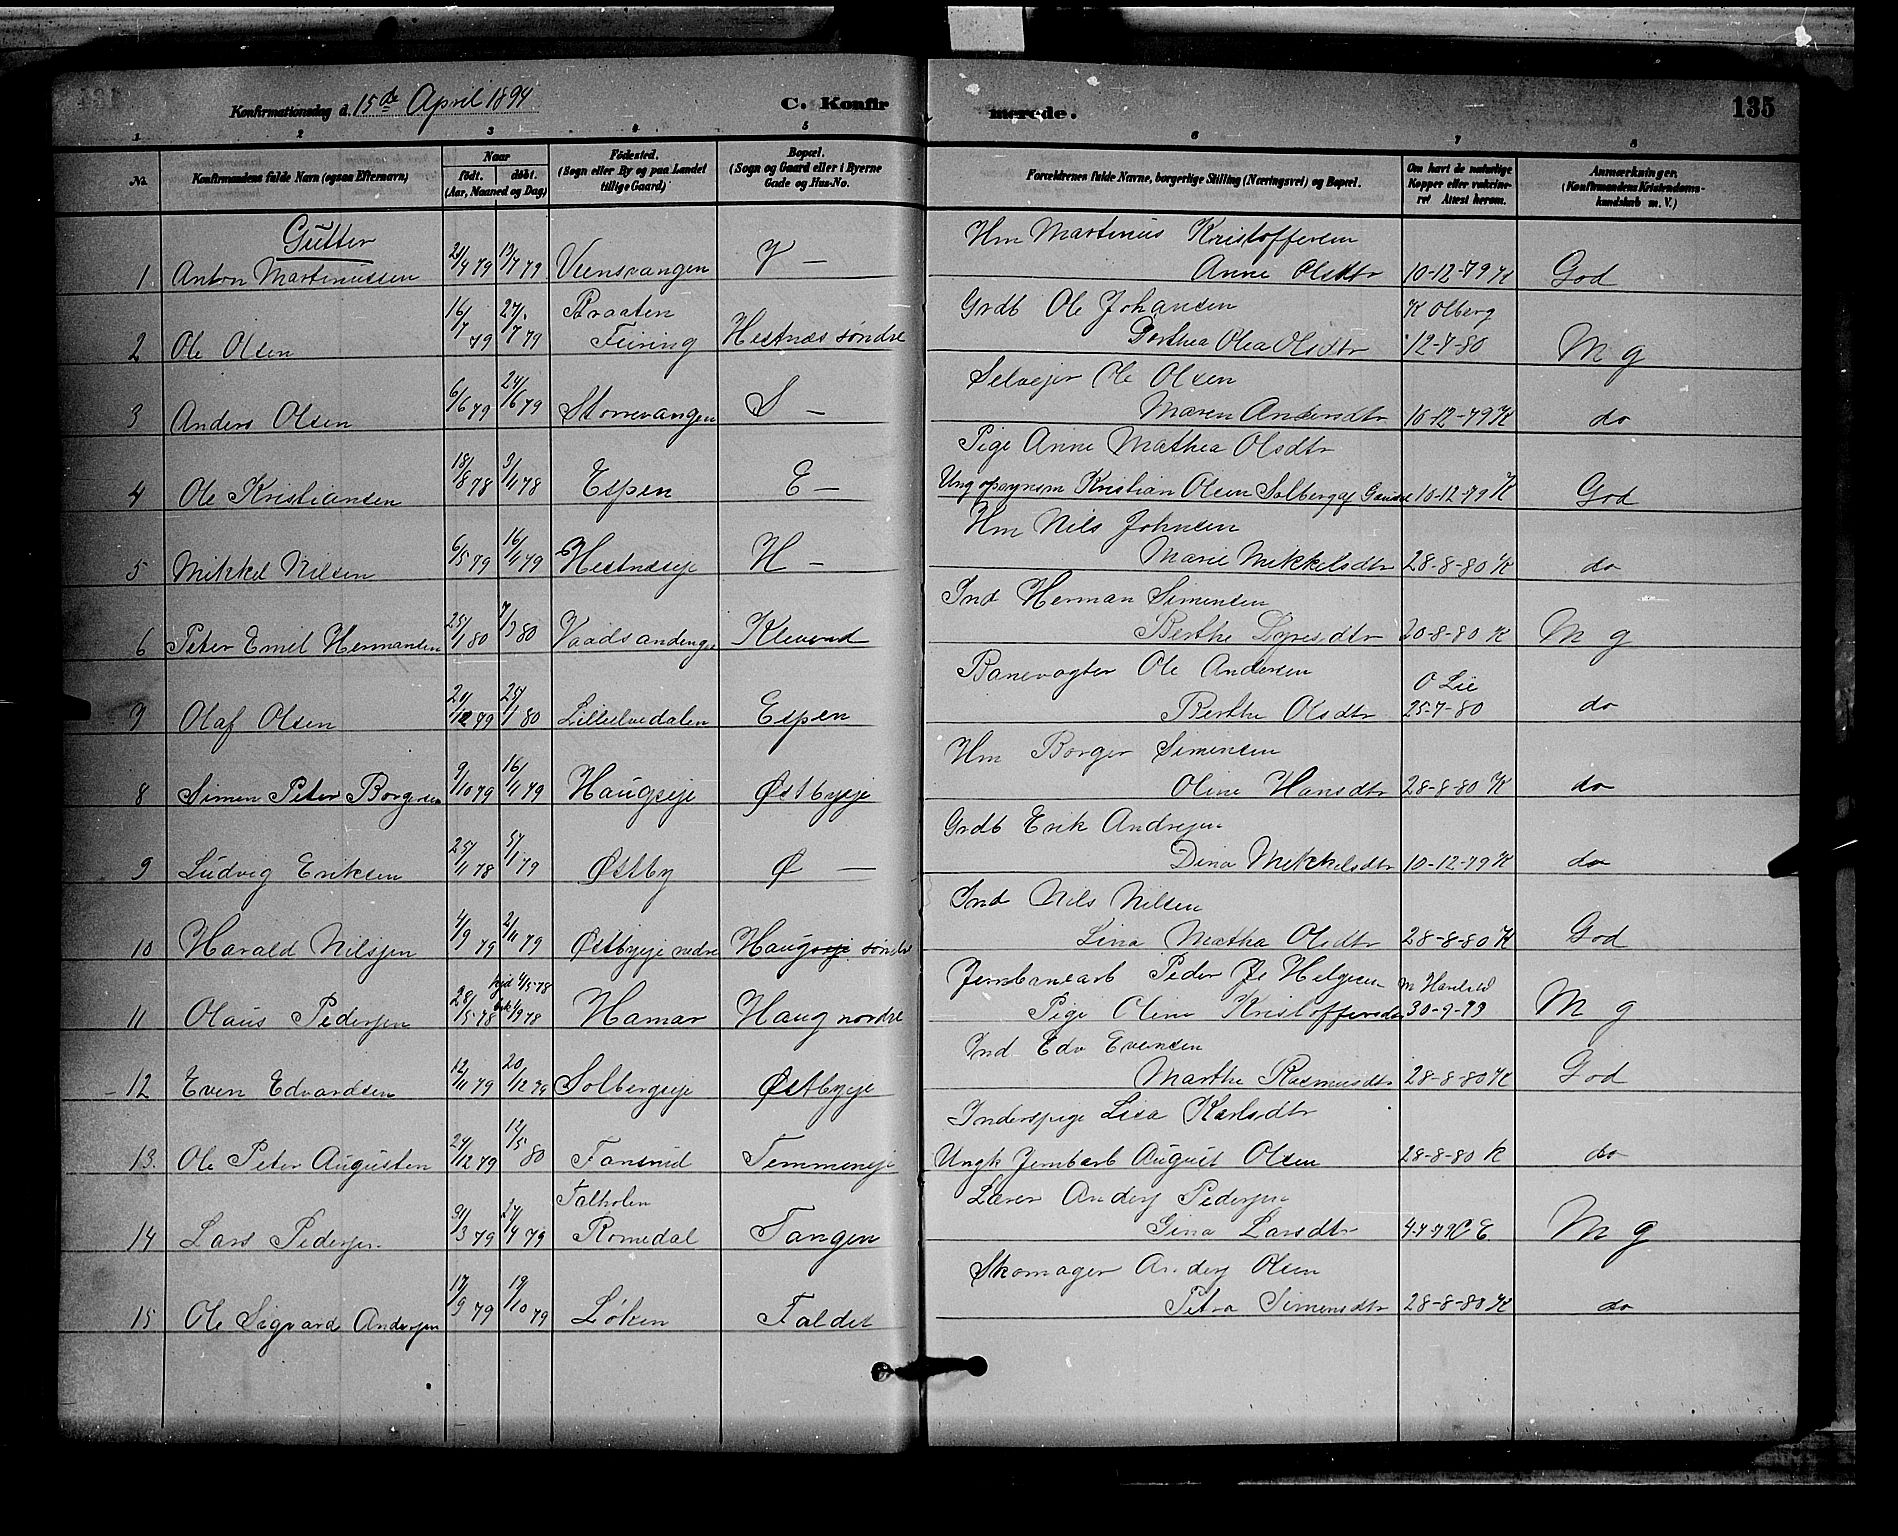 Konfirmationsdag d. 15de April 1894
C. Konfirmerede.
135
1 2 3 4 5 6 7 8
No. Konfirmandens fulde Navn (ogsaa Efternavn) Naar født. døbt. (Aar, Maaned og Dag) Fødested. (Sogn eller By og paa Landet tillige Gaard) Bopæl. (Sogn og Gaard eller i Byerne Gade og Hus-No. Forældrenes fulde Navne, borgerlige Stilling (Næringsvei) og Bopæl. Om havt de naturlige Kopper eller vaksineret Attest herom. Anmærkninger. (Konfirmandens Kristendomskundskab m. V.)
Gutter
1 Anton Martinussen 21/4 79 13/7 79 Veensvangen V — Hm Martinus Kristoffersen
Anne Olsdtr 10-12-79 K God
2 Ole Olsen 16/7 79 27/7 79 Braaten Feiring Hestnæs søndre Grdb Ole Johansen
Dorthea Olea Olsdtr K Olberg 12-7-80 M g
3 Anders Olsen 6/6 79 24/6 79 Storrevangen S — Selvejer Ole Olsen
Maren Andersdtr 10-12-79 K do
4 Ole Kristiansen 18/8 78 3/11 78 Espen E — Pige Anne Mathea Olsdtr
Kristian Olsen Solberg af 10-12-79 K God
5 Mikkel Nilsen 6/5 79 16/11 79 Hestnæseje H — Hm Nils Johnsen
Marie Mikkelsdtr 28-8-80 K do
6 Peter Emil Hermansen 25/1 80 7/3 80 Vaadsandenge Kleverud Ind Herman Simensen
Berthe Syversdtr 20-8-80 K M g
7 Olaf Olsen 21/12 79 25/1 80 Lillelvedalen Espen Banevogter Ole Andersen
Berthe Olsdtr O Lie 25-7-80 do
8 Simen Peter Borgersen 9/10 79 16/11 79 Haugseje Østbyeje Hm Borger Simensen
Oline Hansdtr 28-8-80 K do
9 Ludvig Eriksen 25/11 78 5/1 79 Østby Ø — Grdb Erik Andersen
Dina Mikkelsdtr 10-12-79 K do
10 Harald Nilsen 4/9 79 2/11 79 Østbyeje nedre Haugseje søndre Ind Nils Nilsen
Lina Mathea Olsdtr 28-8-80 K God
11 Olaus Pedersen 28/5 78 hjd 4/5 78 bek 1/9 78 Hamar Haug nordre Jernbanearb Peder Helgesen
Pige Oline Kristoffersdtr 30-9-93 M g
12 Even Edvardsen 12/11 79 20/12 79 Solbergseje Østbyeje Ind Edv Evensen
Marthe Rasmusdtr 28-8-80 K God
13. Ole Peter Augusten 24/12 79 12/5 80 Fansrud Temmeneje Inderspige Lisa Karlsdtr
Ungk Jernbarb August Olsen 28-8-80 K do
14 Lars Pedersen 31/3 79 27/4 79 Romedal Tangen Lærer Anders Pedersen
Gina Larsdtr M g
15 Ole Sigvard Andersen 17/9 79 19/10 79 Løken Faldet Skomager Anders Olsen
Petra Simensdtr 28-8-80 K do